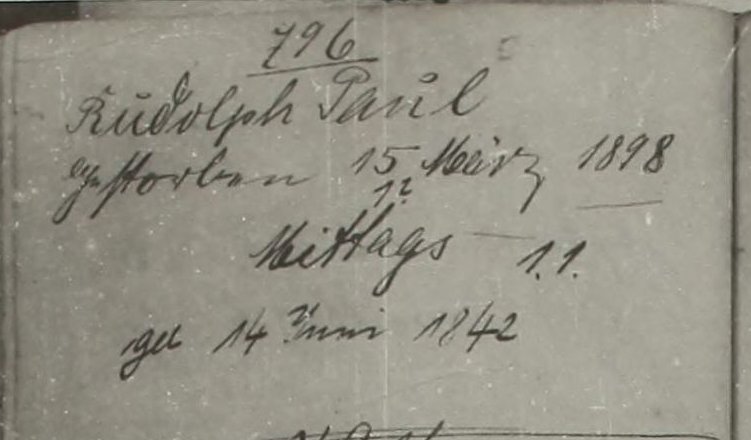 796
Rudolph Paul
Gestorben 15 März 1898
12
Mittags — 1.1.
geb 14 Juni 1842